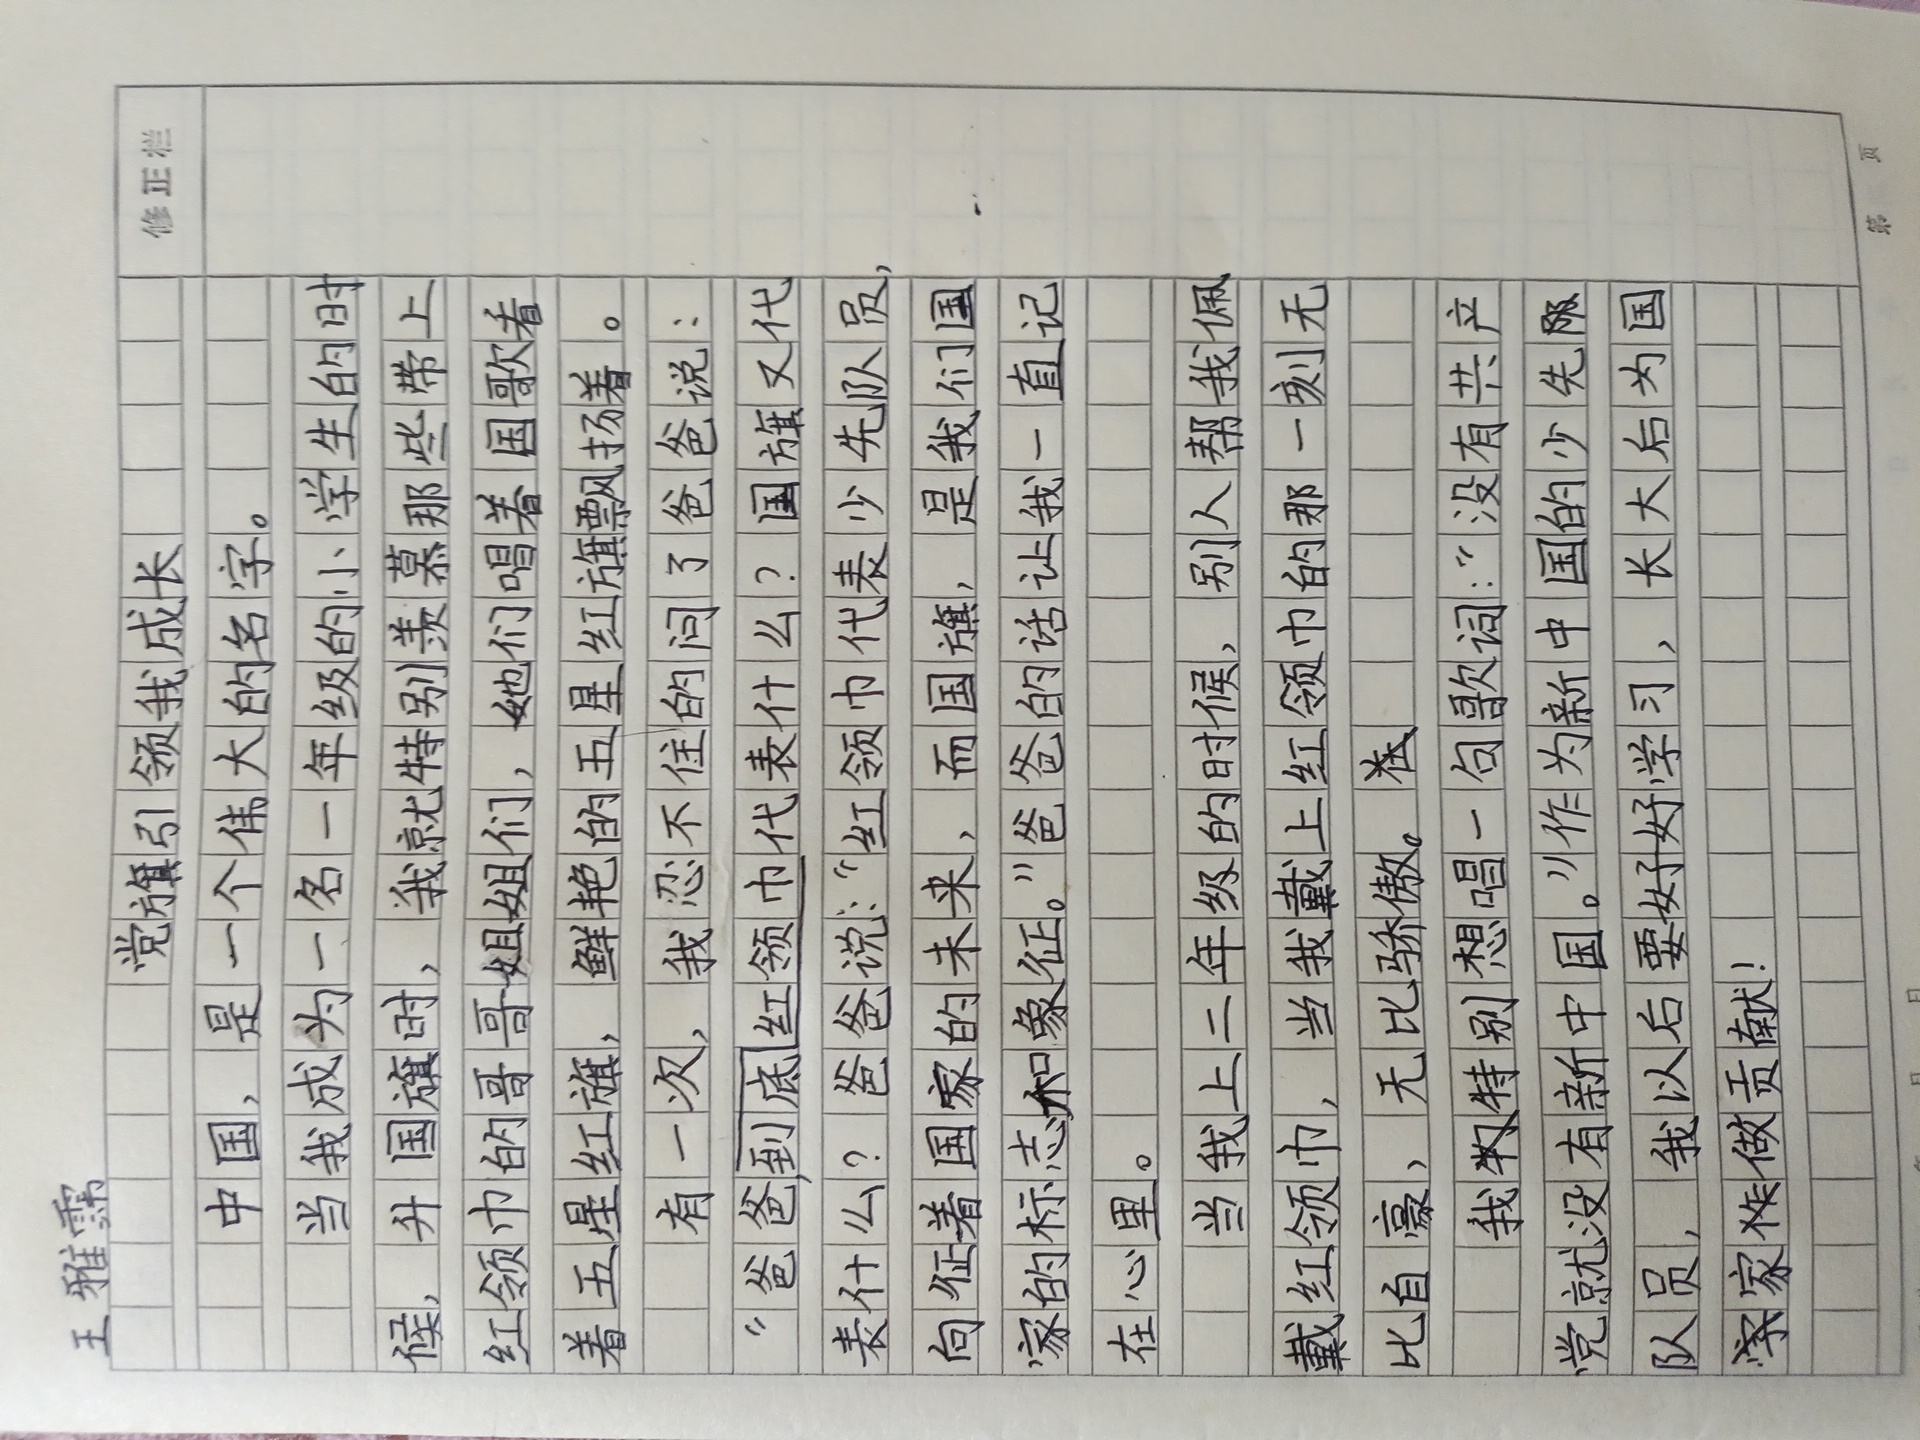 王雅霈
修正栏
党旗引领我成长
中国，是一个伟大的名字。
当我成为一名一年级的小学生的时
候，升国旗时，我就特别羡慕那些带上
红领巾的哥哥姐姐们，她们唱着国歌看
着五星红旗，鲜艳的五星红旗飘扬着。
有一次，我忍不住的问了爸爸说：
“爸爸，到底红领巾代表什么？国旗又代
表什么？爸爸说：“红领巾代表少先队员，
向征着国家的未来，而国旗，是我们国
家的标志和象征。”爸爸的话让我一直记
在心里。
当我上二年级的时候，别人帮我佩
戴红领巾，当我戴上红领巾的那一刻无
比自豪，无比骄傲。
我特别想唱一句歌词：“没有共产
党就没有新中国。”作为新中国的少先
队员，我以后要好好学习，长大后为国
家做贡献！
第 页